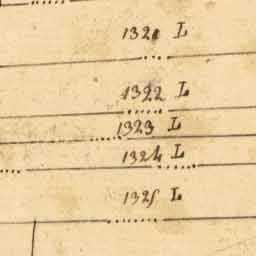 1321 L
1322 L
1323 L
1324 L
1325 L